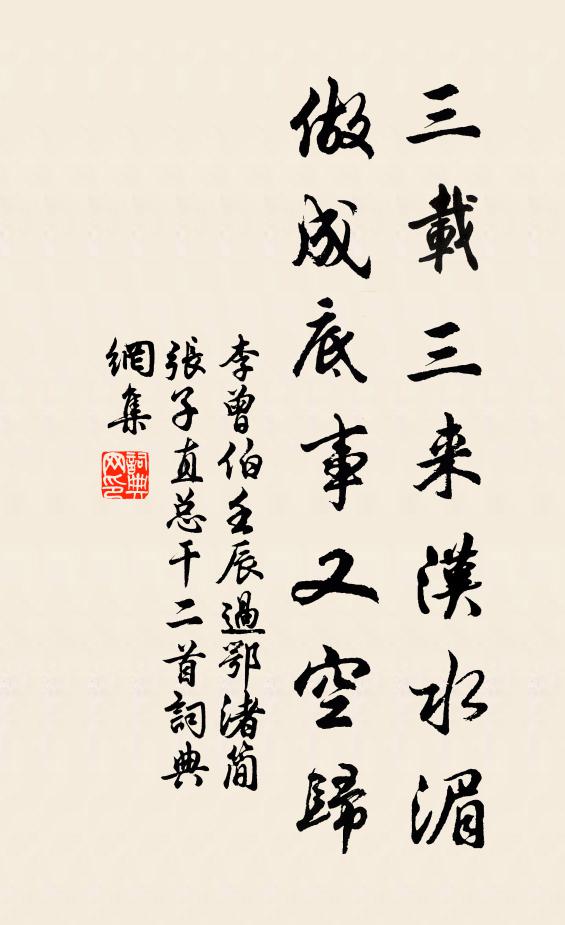 三載三来漢水湄
做成底事又空歸
李曾伯壬辰過鄂渚簡
張子直总干二首詞典
網集
詞典
网印